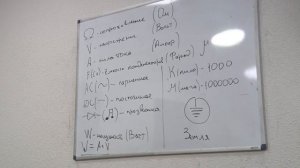 Ω - сопротивление (Ом)
V - напряжение (Вольт)
A - сила тока (Ампер)
F(c) - ёмкость конденсатора (Фарад) μ
AC (~) - переменное K (кило) - 1000
DC (—) - постоянное M (мега) - 1000000
- прозвонка
W - мощность (Ватт) Земля
W = A · V